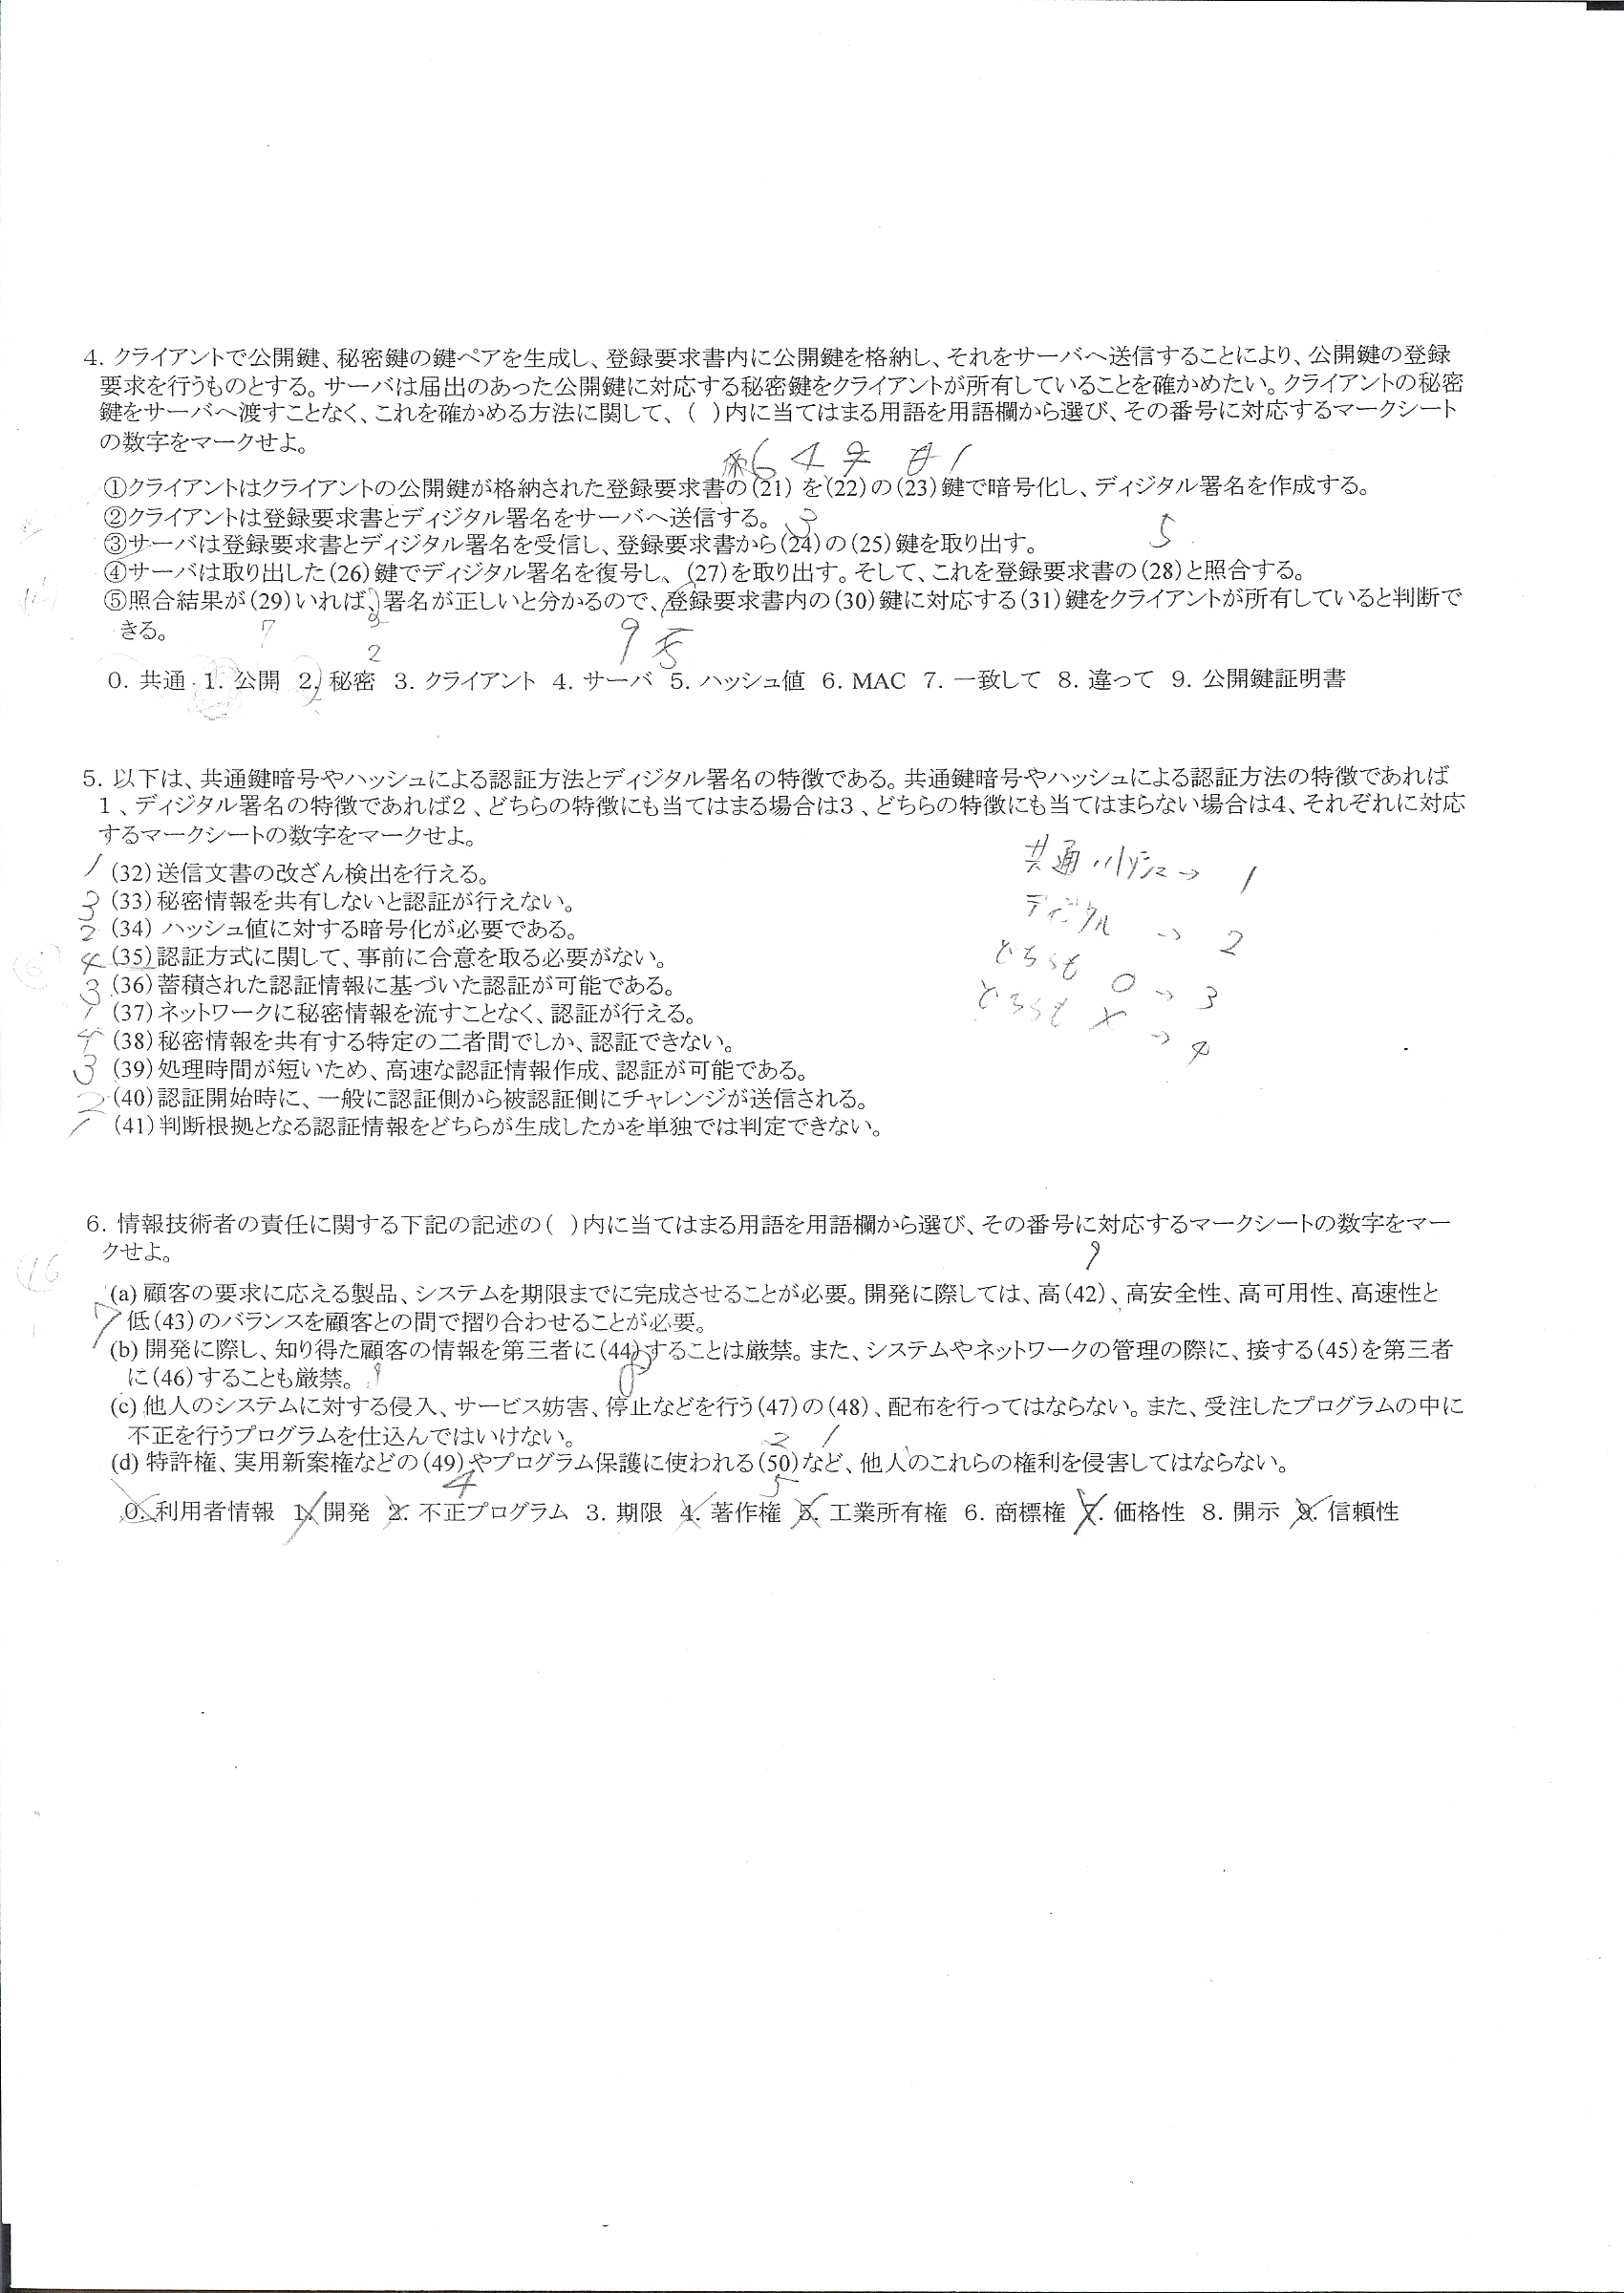 4. クライアントで公開鍵、秘密鍵の鍵ペアを生成し、登録要求書内に公開鍵を格納し、それをサーバへ送信することにより、公開鍵の登録
要求を行うものとする。サーバは届出のあった公開鍵に対応する秘密鍵をクライアントが所有していることを確かめたい。クライアントの秘密
鍵をサーバへ渡すことなく、これを確かめる方法に関して、( )内に当てはまる用語を用語欄から選び、その番号に対応するマークシート
の数字をマークせよ。
6 4 1
①クライアントはクライアントの公開鍵が格納された登録要求書の(21) を(22)の(23)鍵で暗号化し、ディジタル署名を作成する。
②クライアントは登録要求書とディジタル署名をサーバへ送信する。
3 5
③サーバは登録要求書とディジタル署名を受信し、登録要求書から(24)の(25)鍵を取り出す。
④サーバは取り出した(26)鍵でディジタル署名を復号し、(27)を取り出す。そして、これを登録要求書の(28)と照合する。
⑤照合結果が(29)いれば、署名が正しいと分かるので、登録要求書内の(30)鍵に対応する(31)鍵をクライアントが所有していると判断で
きる。
7 2 9
0. 共通 1. 公開 2. 秘密 3. クライアント 4. サーバ 5. ハッシュ値 6. MAC 7. 一致して 8. 違って 9. 公開鍵証明書
5. 以下は、共通鍵暗号やハッシュによる認証方法とディジタル署名の特徴である。共通鍵暗号やハッシュによる認証方法の特徴であれば
1、ディジタル署名の特徴であれば2、どちらの特徴にも当てはまる場合は3、どちらの特徴にも当てはまらない場合は4、それぞれに対応
するマークシートの数字をマークせよ。
1 (32)送信文書の改ざん検出を行える。
3 (33)秘密情報を共有しないと認証が行えない。
2 (34) ハッシュ値に対する暗号化が必要である。
4 (35)認証方式に関して、事前に合意を取る必要がない。
3 (36)蓄積された認証情報に基づいた認証が可能である。
1 (37)ネットワークに秘密情報を流すことなく、認証が行える。
4 (38)秘密情報を共有する特定の二者間でしか、認証できない。
3 (39)処理時間が短いため、高速な認証情報作成、認証が可能である。
2 (40)認証開始時に、一般に認証側から被認証側にチャレンジが送信される。
1 (41)判断根拠となる認証情報をどちらが生成したかを単独では判定できない。
共通ハッシュ→ 1
ディジタル → 2
どちらも ○ → 3
どちらも × → 4
6. 情報技術者の責任に関する下記の記述の( )内に当てはまる用語を用語欄から選び、その番号に対応するマークシートの数字をマー
クせよ。
9
(a) 顧客の要求に応える製品、システムを期限までに完成させることが必要。開発に際しては、高(42)、高安全性、高可用性、高速性と
7 低(43)のバランスを顧客との間で摺り合わせることが必要。
(b) 開発に際し、知り得た顧客の情報を第三者に(44)することは厳禁。また、システムやネットワークの管理の際に、接する(45)を第三者
に(46)することも厳禁。
(c) 他人のシステムに対する侵入、サービス妨害、停止などを行う(47)の(48)、配布を行ってはならない。また、受注したプログラムの中に
不正を行うプログラムを仕込んではいけない。
2 1
(d) 特許権、実用新案権などの(49)やプログラム保護に使われる(50)など、他人のこれらの権利を侵害してはならない。
4 5
0. 利用者情報 1. 開発 2. 不正プログラム 3. 期限 4. 著作権 5. 工業所有権 6. 商標権 7. 価格性 8. 開示 9. 信頼性